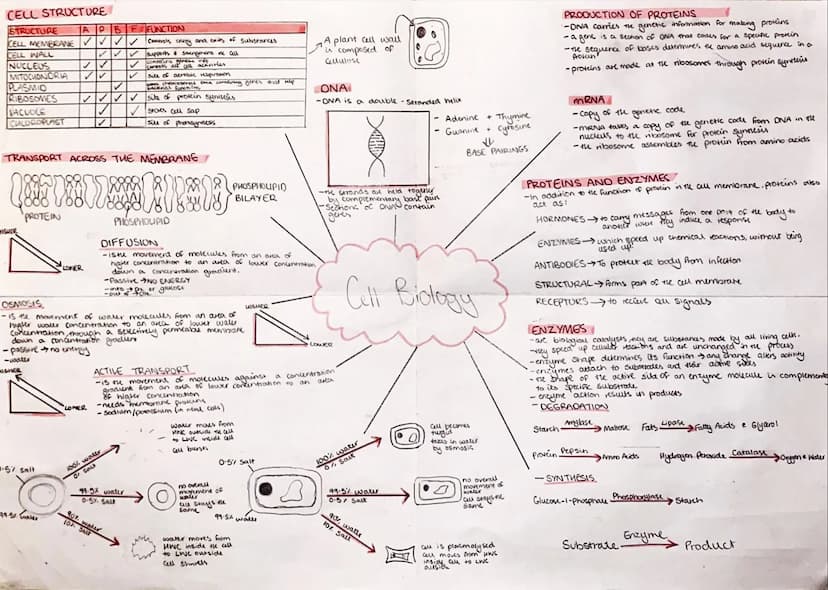 CELL STRUCTURE
STRUCTURE A P B F FUNCTION
CELL MEMBRANE ✓ ✓ ✓ ✓ Controls entry and exits of substances
CELL WALL ✓ ✓ ✓ Supports & strengthens the cell
NUCLEUS ✓ ✓ ✓ contains genetic info controls cell activities
MITOCHONDRIA ✓ ✓ ✓ Site of aerobic respiration
PLASMID ✓
RIBOSOMES ✓ ✓ ✓ ✓ Site of protein synthesis
VACUOLE ✓ ✓ Stores cell sap
CHLOROPLAST ✓ Site of photosynthesis
A plant cell wall
is composed of
cellulose
DNA
- DNA is a double-stranded helix
- Adenine + Thymine
- Guanine + Cytosine
BASE PAIRINGS
- the strands are held together
by complementary base pairs
- Sections of DNA contain
genes
TRANSPORT ACROSS THE MEMBRANE
PHOSPHOLIPID
BILAYER
PROTEIN
PHOSPHOLIPID
HIGHER
LOWER
DIFFUSION
- is the movement of molecules from an area of
higher concentration to an area of lower concentration
down a concentration gradient.
- Passive → NO ENERGY
OSMOSIS
- is the movement of water molecules from an area of
higher water concentration to an area of lower water
concentration through a selectively permeable membrane
down a concentration gradient
- passive → no energy
- water
HIGHER
LOWER
ACTIVE TRANSPORT
- is the movement of molecules against a concentration
gradient from an area of lower concentration to an area
of higher concentration
- needs membrane proteins
- Sodium/potassium (in nerve cells)
HIGHER
LOWER
0.5% Salt
99.5% water
100% water
0% Salt
water moves from
HWC outside the cell
to LWC inside cell
cell bursts
99.5% water
0.5% Salt
no overall
movement of
water
cell stays the
same
90% water
10% Salt
water moves from
HWC inside the cell
to LWC outside
cell shrinks
0.5% Salt
99.5% water
100% water
0% Salt
Cell becomes
turgid
takes in water
by osmosis
99.5% water
0.5% Salt
no overall
movement of
water
cell stays the
same
90% water
10% Salt
cell is plasmolysed
cell moves from HWC
inside cell to LWC
outside
Cell Biology
PRODUCTION OF PROTEINS
- DNA carries the genetic information for making proteins
- a gene is a section of DNA that codes for a specific protein
- the sequence of bases determines the amino acid sequence in a
protein
- proteins are made at the ribosomes through protein synthesis
mRNA
- copy of the genetic code
- mRNA takes a copy of the genetic code from DNA in the
nucleus to the ribosome for protein synthesis
- the ribosome assembles the protein from amino acids
PROTEINS AND ENZYMES
- In addition to the function of protein in the cell membrane, proteins also
act as:
HORMONES → to carry messages from one part of the body to
another where they induce a response
ENZYMES → which speed up chemical reactions, without being
used up
ANTIBODIES → To protect the body from infection
STRUCTURAL → forms part of the cell membrane
RECEPTORS → to receive cell signals
ENZYMES
- are biological catalysts, they are substances made by all living cells.
- they speed up cellular reactions and are unchanged in the process
- enzyme shape determines its function → any change alters activity
- enzymes attach to substrates at their active sites
- the shape of the active site of an enzyme molecule is complementary
to its specific substrate.
- enzyme action results in products
- DEGRADATION
Starch Amylase → Maltose Fats Lipase → Fatty Acids + Glycerol
Protein Pepsin → Amino Acids Hydrogen Peroxide Catalase → Oxygen + Water
- SYNTHESIS
Glucose-1-phosphate Phosphorylase → Starch
Substrate Enzyme → Product